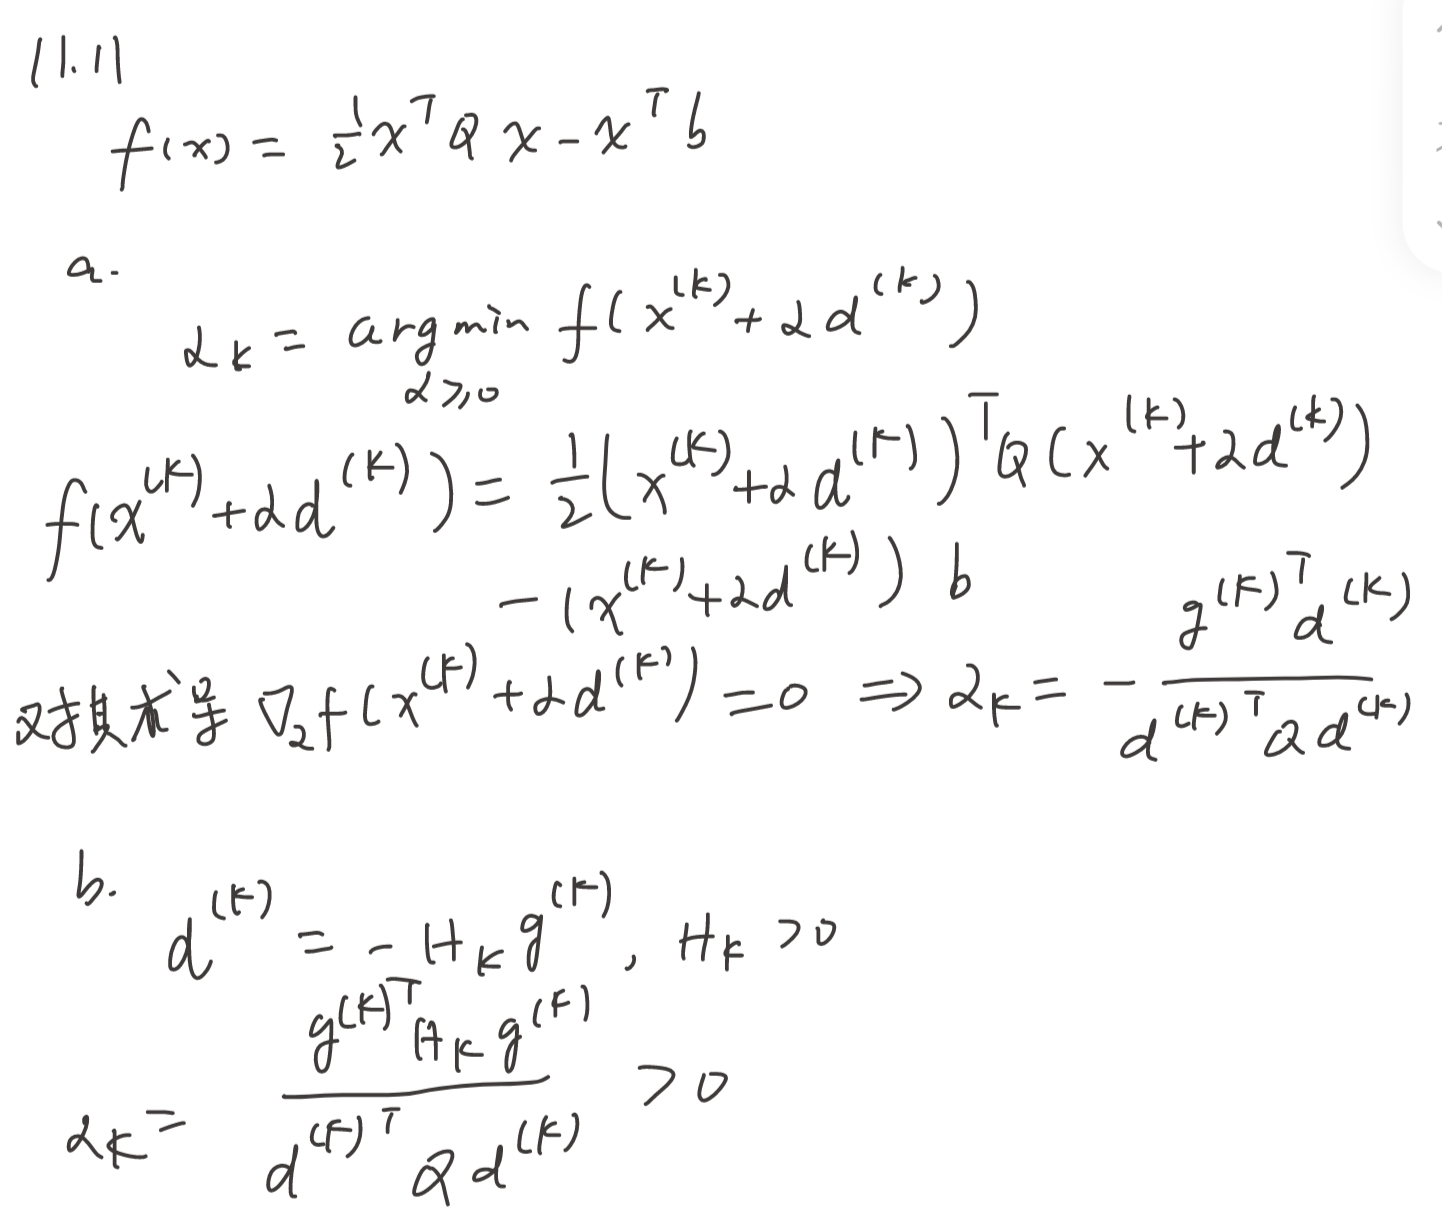 11.11
f(x) = ½xᵀQx - xᵀb
a.
α_k = argmin f(x^(k) + αd^(k))
α⩾0
f(x^(k) + αd^(k)) = ½(x^(k) + αd^(k))ᵀQ(x^(k) + αd^(k))
- (x^(k) + αd^(k)) b
对其求导 ∇_α f(x^(k) + αd^(k)) = 0 ⇒ α_k = - g^(k)ᵀd^(k) / d^(k)ᵀQd^(k)
b.
d^(k) = - H_k g^(k), H_k > 0
α_k = g^(k)ᵀH_k g^(k) / d^(k)ᵀQd^(k) > 0